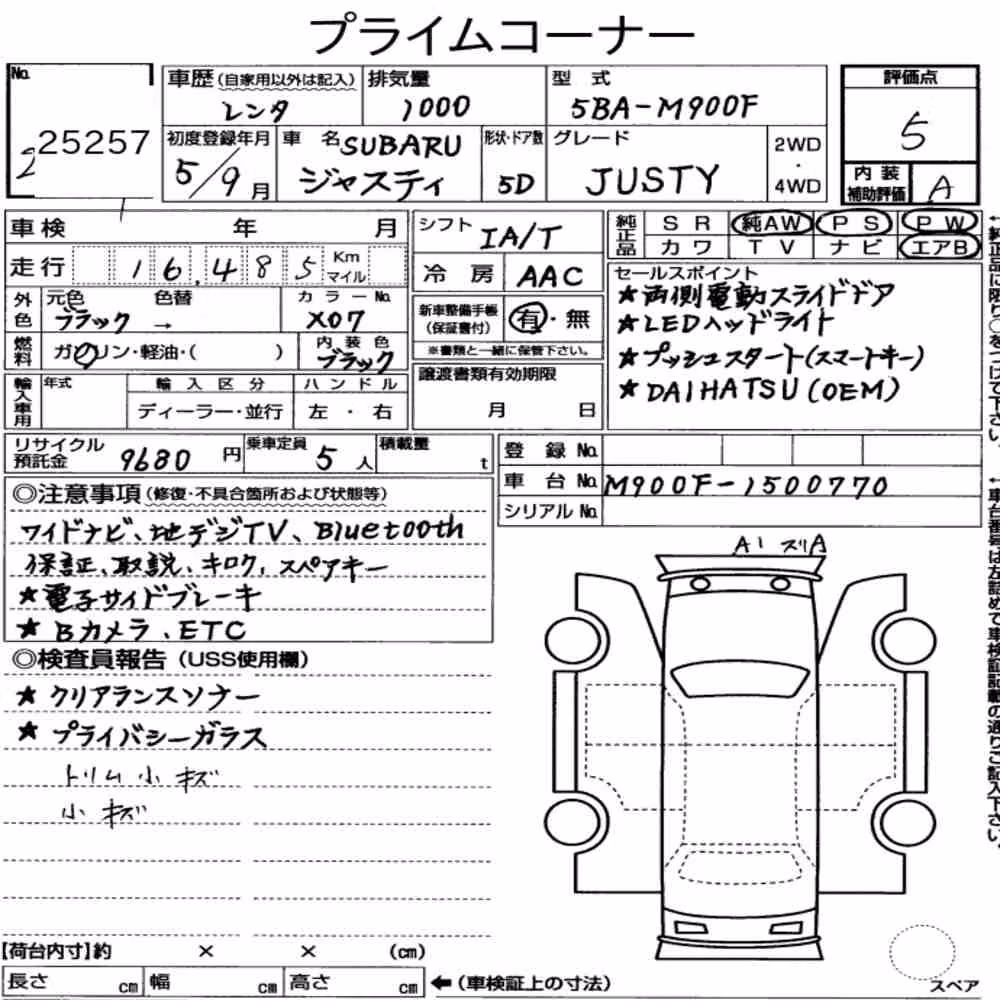 プライムコーナー
No. 25257
車歴(自家用以外は記入) レンタ
排気量 1000
型式 5BA-M900F
評価点 5
内装補助評価 A
初度登録年月 5/9月
車名 SUBARU ジャスティ
形状・ドア数 5D
グレード JUSTY
2WD・4WD
車検 年 月
走行 16,485 Km マイル
シフト IA/T
冷房 AAC
純正品 SR 純AW PS PW
カワ TV ナビ エアB
外色 元色 ブラック → 色替
カラーNo. X07
燃料 ガソリン・軽油・( )
内装色 ブラック
新車整備手帳(保証書付) 有・無
※書類と一緒に保管下さい。
セールスポイント
★両側電動スライドドア
★LEDヘッドライト
★プッシュスタート(スマートキー)
★DAIHATSU(OEM)
輸入車用 年式 輸入区分 ハンドル
ディーラー・並行 左・右
譲渡書類有効期限
月 日
リサイクル預託金 9680円
乗車定員 5人
積載量 t
登録No.
車台No. M900F-1500770
シリアルNo.
◎注意事項(修復・不具合箇所および状態等)
ワイドナビ、地デジTV、Bluetooth
保証、取説、キロク、スペアキー
★電子サイドブレーキ
★Bカメラ、ETC
◎検査員報告(USS使用欄)
★クリアランスソナー
★プライバシーガラス
トリム小キズ
小キズ
A1 スリA
【荷台内寸】約 × × (cm)
長さ cm 幅 cm 高さ cm ←(車検証上の寸法)
スペア
←純正品に限り○をつけて下さい。
←車台番号は左詰めで車検証記載の通りご記入下さい。